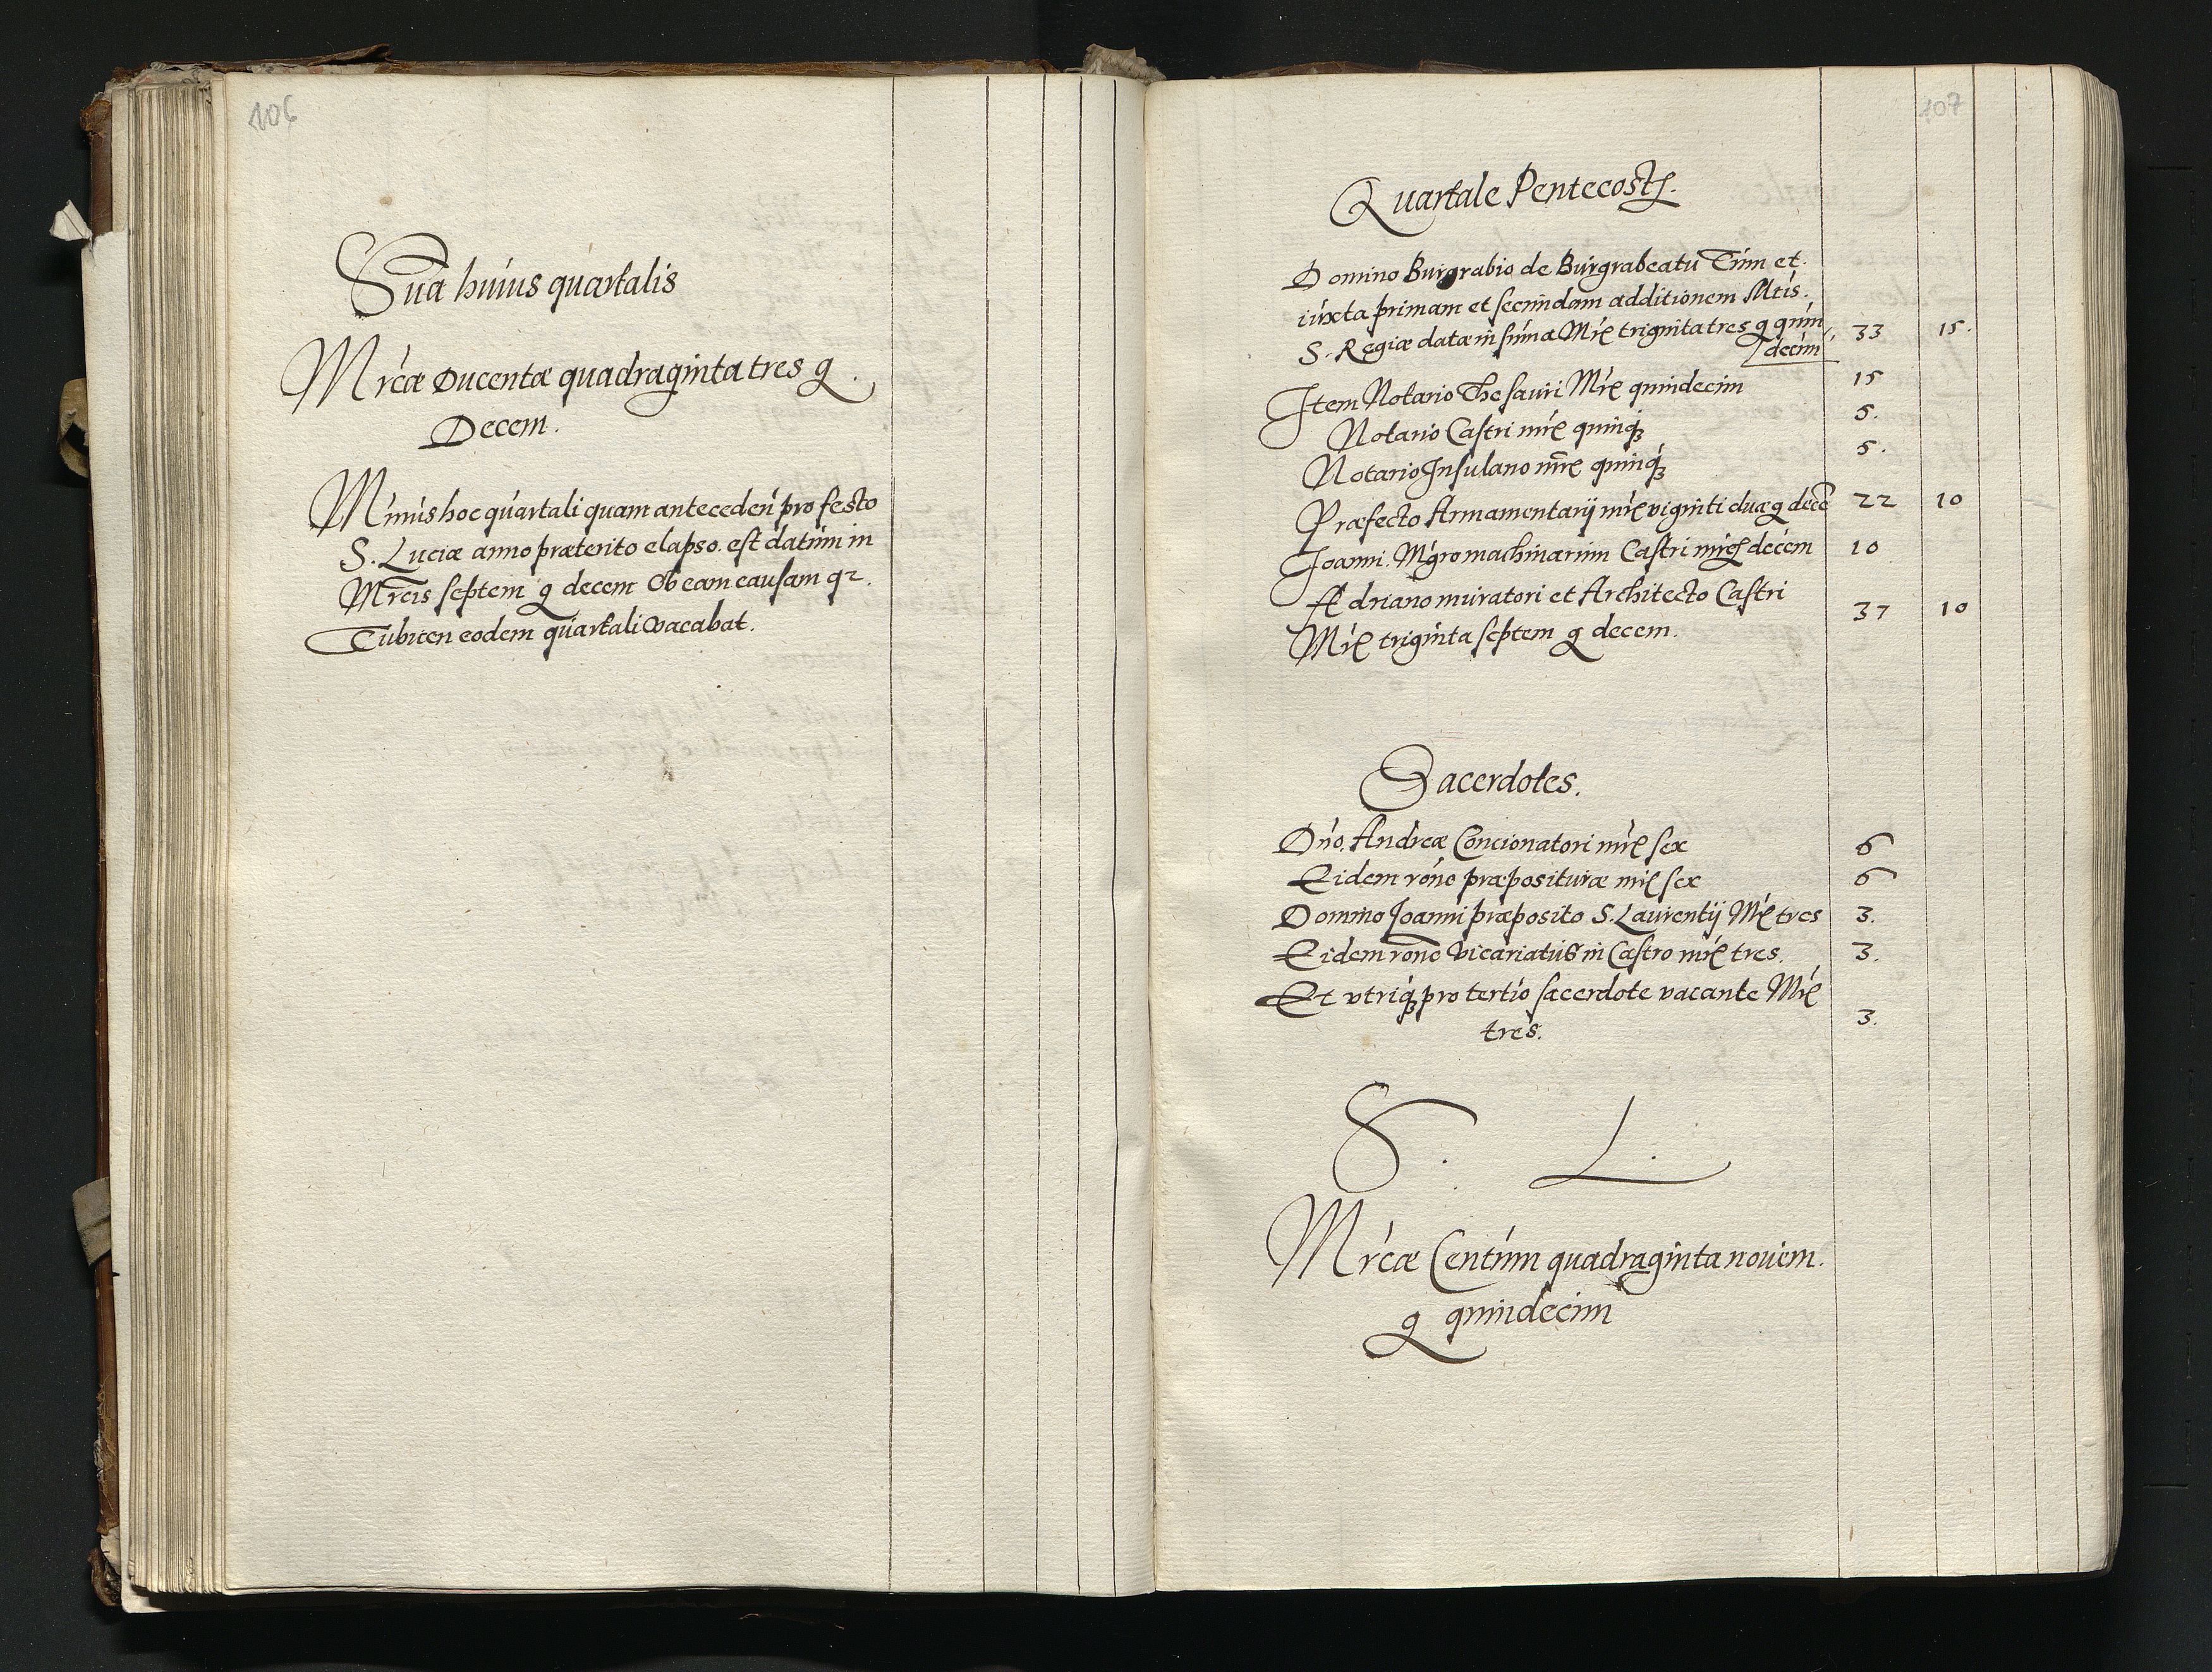 106
Suma huius quartalis
Mrcæ Ducentæ quadraginta tres g
Decem.
Minus hoc quartali quam anteceden pro festo
S. Luciæ anno præterito elapso. est datum in
Mrcis septem g decem Ob eam causam qr.
Tubicen eodem quartali vacabat.
107
Quartale Pentecostes.
Domino Burgrabio de Burgrabeatu Tum et.
iuxta primam et secundam additionem Mtis.
S. Regiæ datæ in suma Mrc triginta tres g quin 33 15.
decim
Item Notario Thesauri Mrc quindecim 15
Notario Castri mrc quinq3 5.
Notario Insulano mrc quinq3 5.
Præfecto Armamentarij mrc viginti duæ g dece 22 10
Joanni. Mgro machinarum Castri mrcs decem 10
Adriano muratori et Architecto Castri
Mrc triginta septem g decem. 37 10
Sacerdotes.
Dno. Andreæ Concionatori mrc sex 6
Eidem rone præposituræ mrc sex 6
Domino Joanni præposito S. Laurentij Mrc tres 3.
Eidem rone vicariatus in Castro mrc tres. 3.
Et vtriq3 pro tertio sacerdote vacante Mrc
tres. 3.
S. L.
Mrcæ Centum quadraginta nouem.
g quindecim